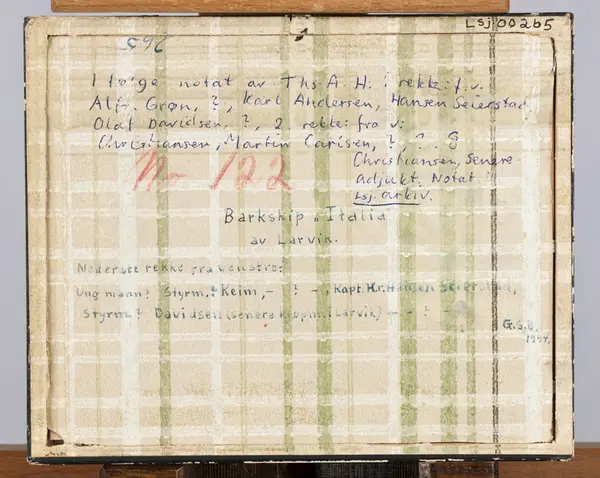 Lsj 00265
265
I følge notat av Ths A. H. 1 rekke: f. v.
Alfr. Grøn, ?, Karl Andersen, Hansen Seierstad
Olaf Davidsen, ?, 2 rekke: fra v:
Martin Carlsen, ?, ?.
Christiansen, senere
adjukt. Notat i
Lsj. arkiv.
No 122
Barkskip „Italia"
av Larvik.
Nederste rekke fra venstre:
Ung mann? Styrm.? Keim, - ? -, Kapt. Hr. Hansen Seierstad,
Styrm? Davidsen (senere i Larvik) - - ? -
G.S.B.
1944.